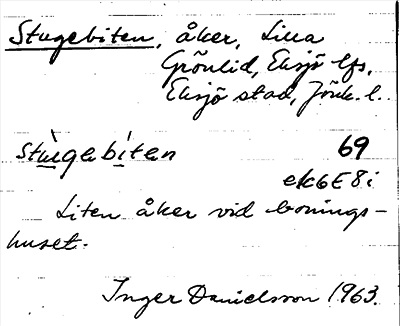 Stugebiten, åker, Lilla
Grönlid, Eksjö lfs,
Eksjö stad, Jönk. l.
stùgebìten 69
ek6E8i
Liten åker vid bonings-
huset.
Inger Danielsson 1963.